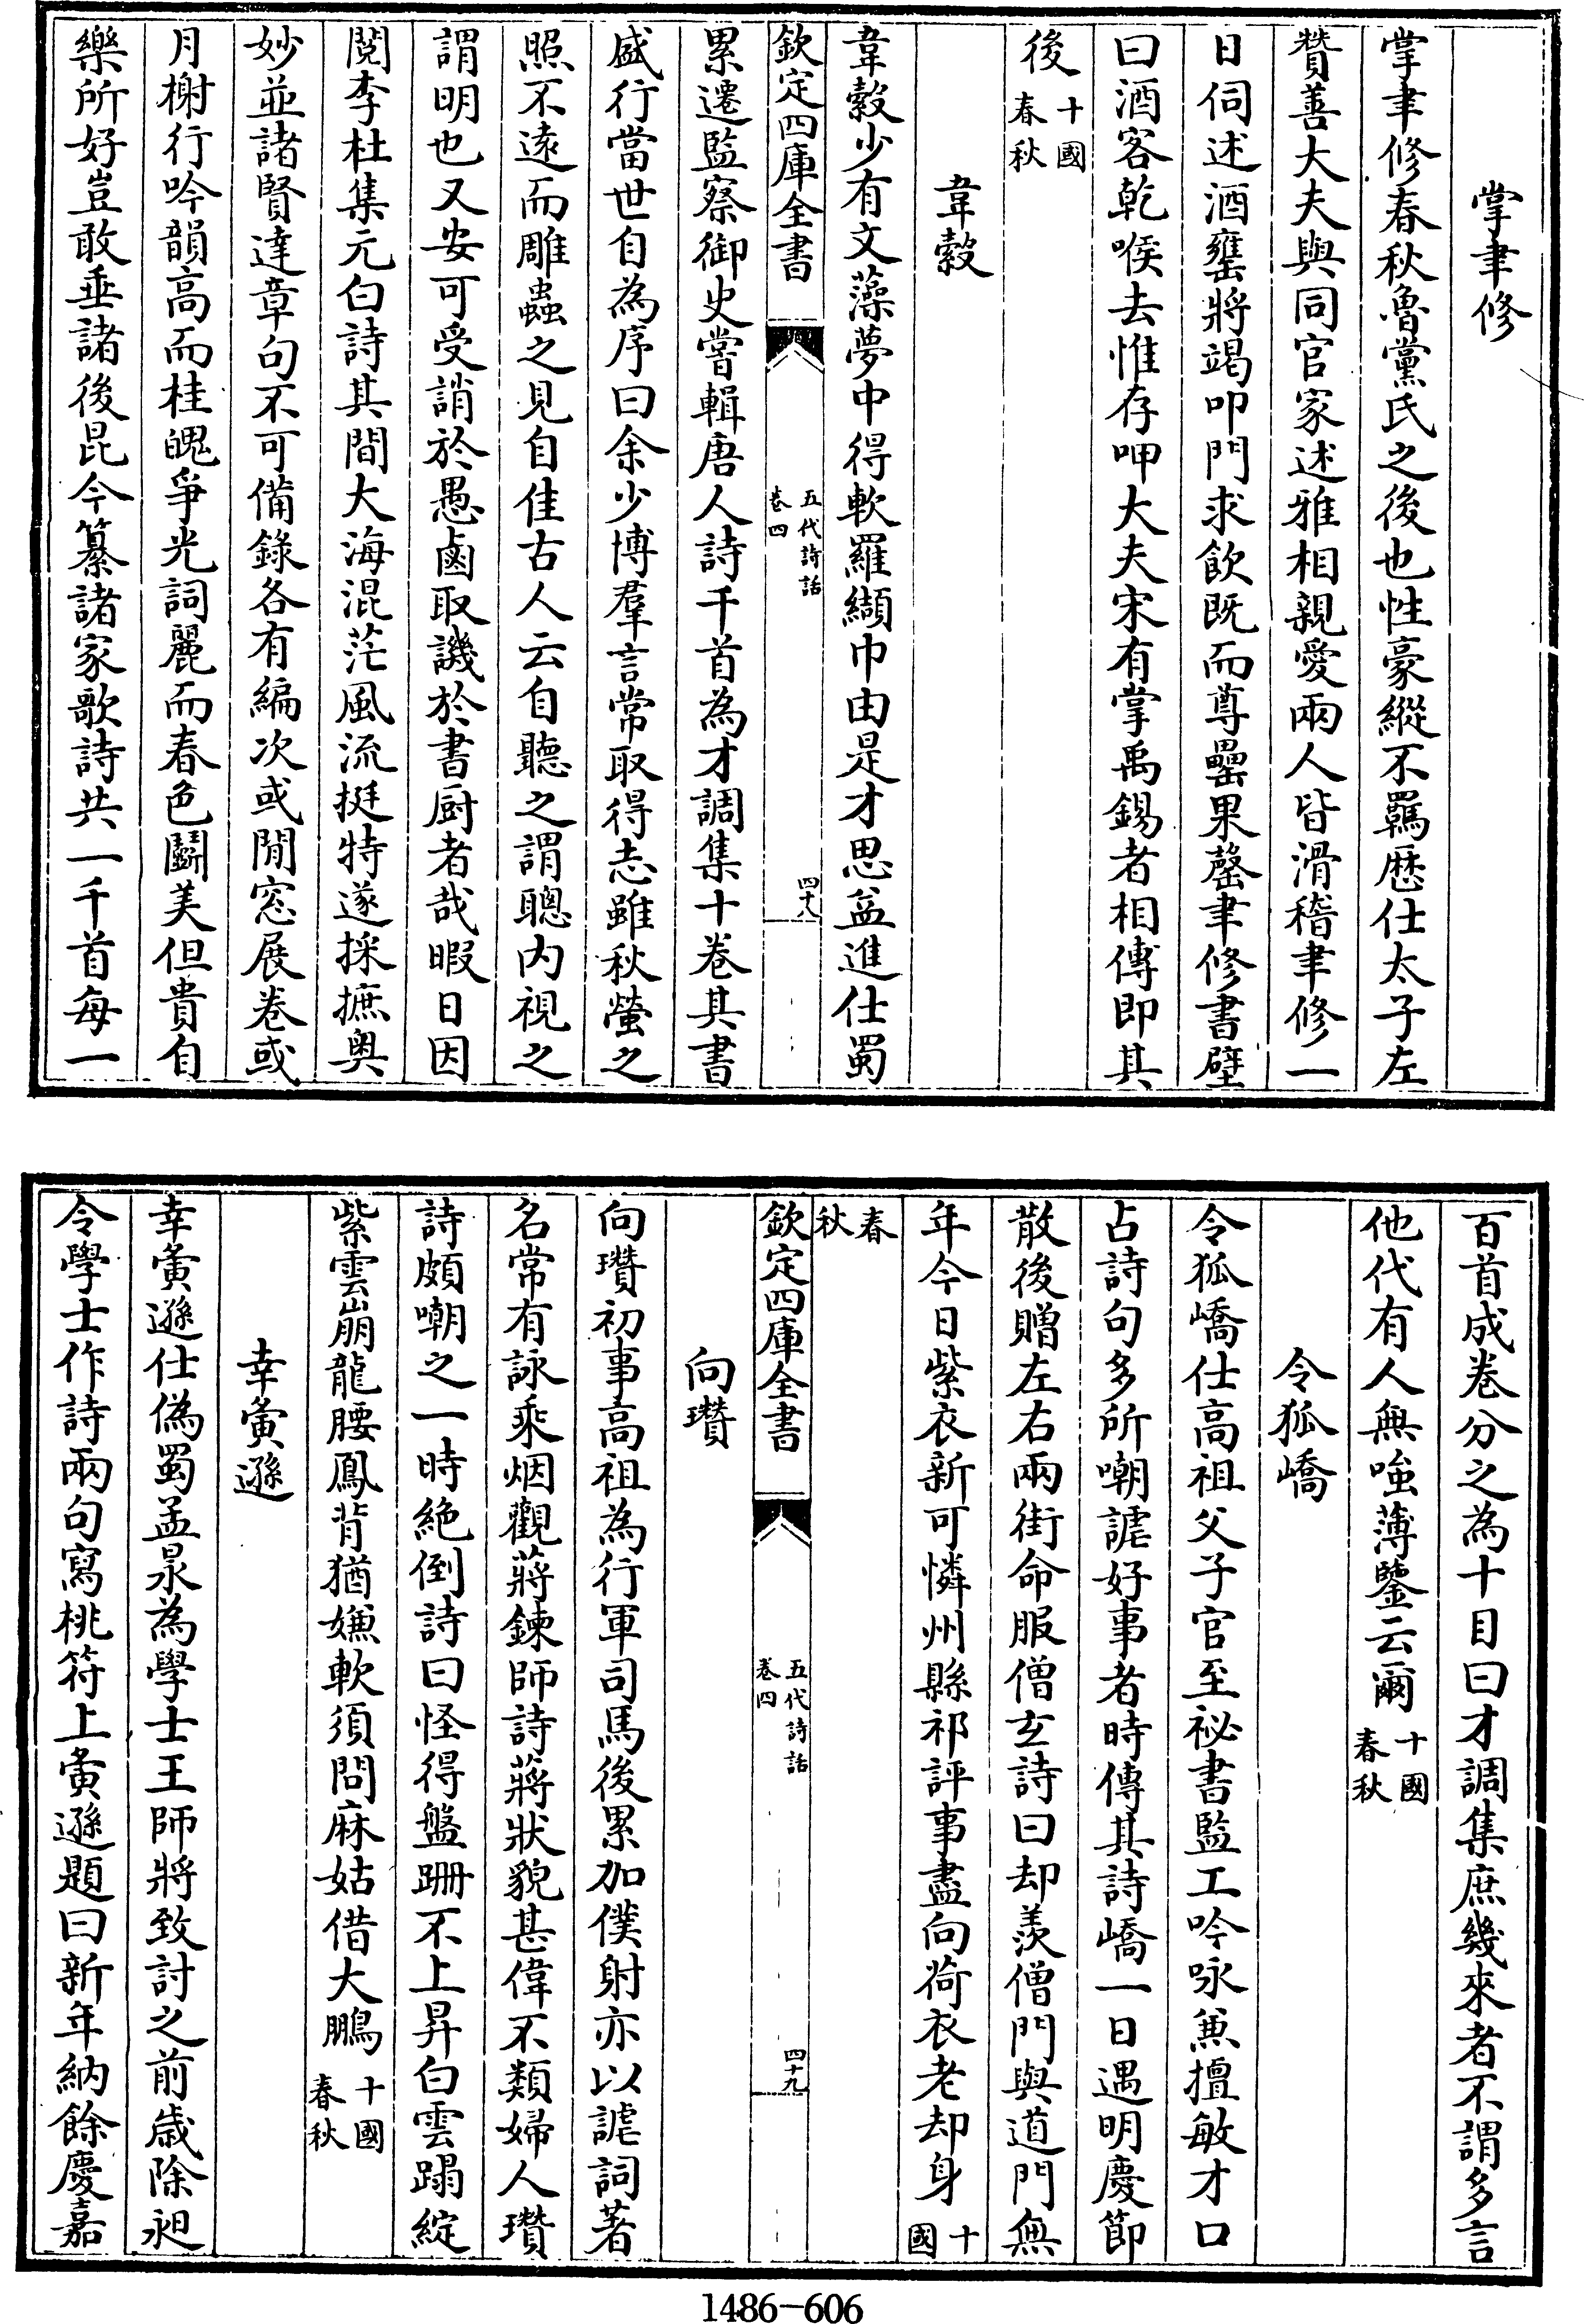 掌聿修
掌聿修春秋魯黨氏之後也性豪縱不羈歷仕太子左
贊善大夫與同官家述雅相親愛兩人皆滑稽聿修一
日伺述酒罋將竭叩門求飲既而尊罍果罄聿修書壁
曰酒客乾喉去惟存呷大夫宋有掌禹錫者相傳即其
後十國春秋
韋縠
韋縠少有文藻夢中得軟羅纈巾由是才思益進仕蜀
欽定四庫全書 五代詩話 卷四 四十八
累遷監察御史嘗輯唐人詩千首為才調集十卷其書
盛行當世自為序曰余少博羣言常取得志雖秋螢之
照不遠而雕蟲之見自佳古人云自聽之謂聰內視之
謂明也又安可受誚於愚鹵取譏於書厨者哉暇日因
閱李杜集元白詩其間大海混茫風流挺特遂採摭奥
妙並諸賢達章句不可備錄各有編次或閒窓展卷或
月榭行吟韻高而桂魄爭光詞麗而春色鬬美但貴自
樂所好豈敢垂諸後昆今纂諸家歌詩共一千首每一
百首成卷分之為十目曰才調集庶幾來者不謂多言
他代有人無嗤薄鑒云爾十國春秋
令狐嶠
令狐嶠仕高祖父子官至祕書監工吟咏兼擅敏才口
占詩句多所嘲謔好事者時傳其詩嶠一日遇明慶節
散後贈左右兩街命服僧玄詩曰却羨僧門與道門無
年今日紫衣新可憐州縣祁評事盡向荷衣老却身十國
春秋
欽定四庫全書 五代詩話 卷四 四十九
向瓚
向瓚初事高祖為行軍司馬後累加僕射亦以謔詞著
名常有詠乘烟觀蔣鍊師詩蔣狀貌甚偉不類婦人瓚
詩頗嘲之一時絶倒詩曰怪得盤跚不上昇白雲蹋綻
紫雲崩龍腰鳳背猶嫌軟須問麻姑借大鵬十國春秋
幸夤遜
幸夤遜仕偽蜀孟昶為學士王師將致討之前歲除昶
令學士作詩兩句寫桃符上夤遜題曰新年納餘慶嘉
1486-606